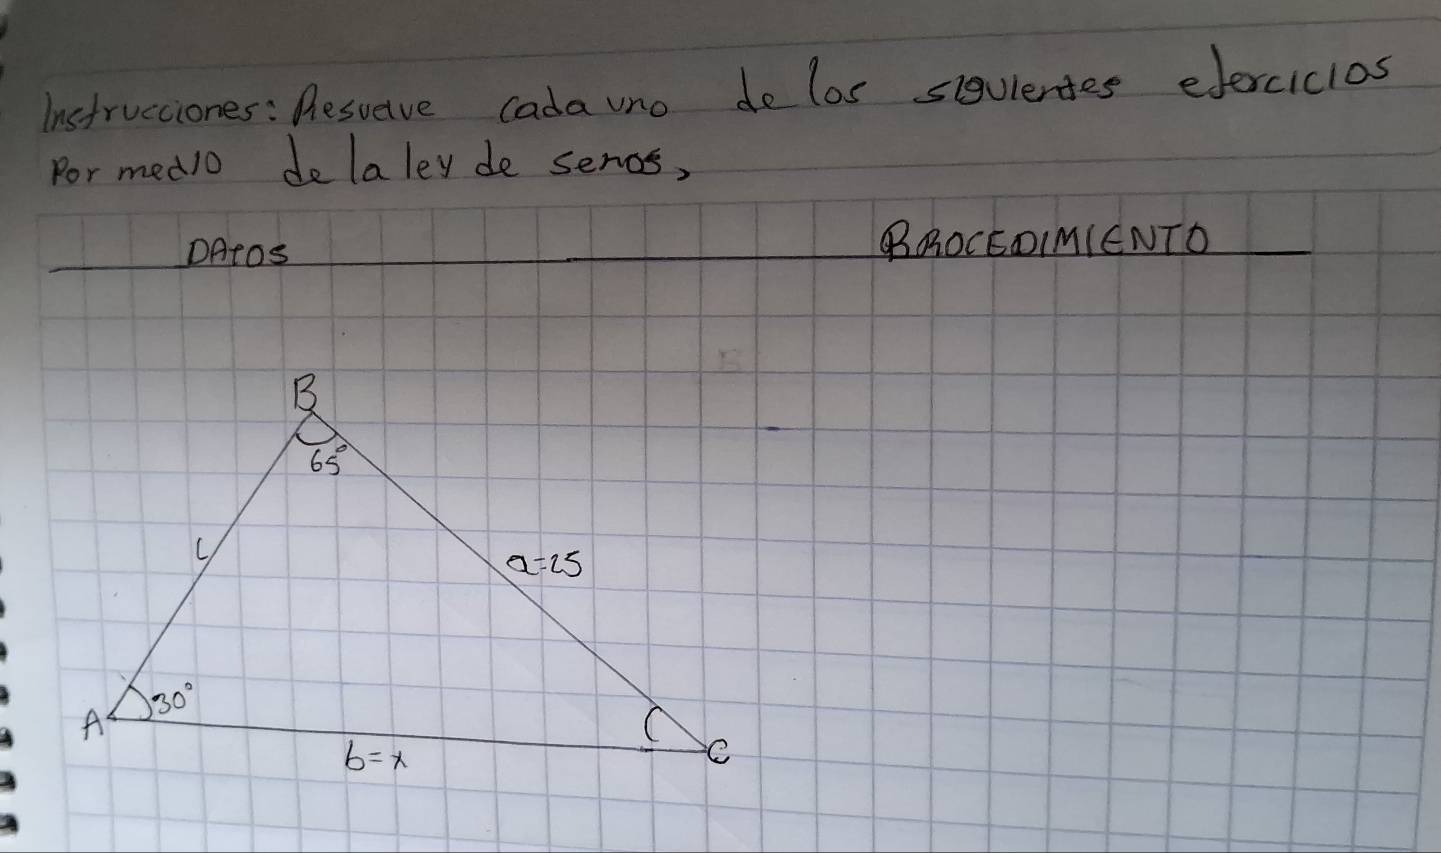 Instrucciones: Resuelve cada uno de los siguientes ejercicios
Por medio de la ley de senos,
DAtOS
PROCEDIMIENTO
B
65°
a=25
30°
A
C
b=x